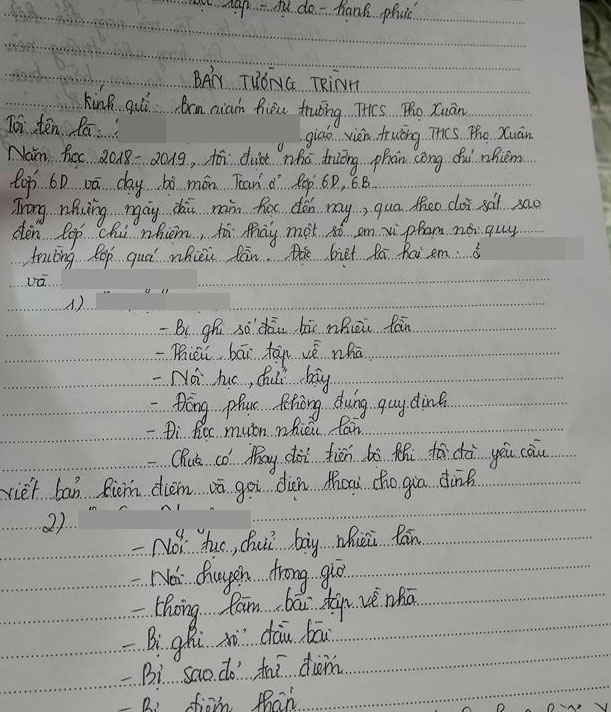 lập - tự do - hạnh phúc
BẢN TƯỜNG TRÌNH
Kính gửi: Ban giám hiệu trường THCS Thọ Xuân
Tôi tên là: giáo viên trường THCS Thọ Xuân
Năm học 2018 - 2019, tôi được nhà trường phân công chủ nhiệm
lớp 6D và dạy bộ môn Toán ở lớp 6D, 6B.
Trong những ngày đầu năm học đến nay, qua theo dõi sát sao
đến lớp chủ nhiệm, tôi thấy một số em vi phạm nội quy
trường lớp quá nhiều lần. Đặc biệt là hai em:
và
1)
- Bị ghi sổ đầu bài nhiều lần
- Thiếu bài tập về nhà
- Nói tục, chửi bậy
- Đồng phục không đúng quy định
- Đi học muộn nhiều lần
- Chưa có thay đổi tiến bộ khi tôi đã yêu cầu
viết bản kiểm điểm và gọi điện thoại cho gia đình
2)
- Nói tục, chửi bậy nhiều lần
- Nói chuyện trong giờ
- Không làm bài tập về nhà
- Bị ghi sổ đầu bài
- Bị sao đỏ trừ điểm
- Bị điểm